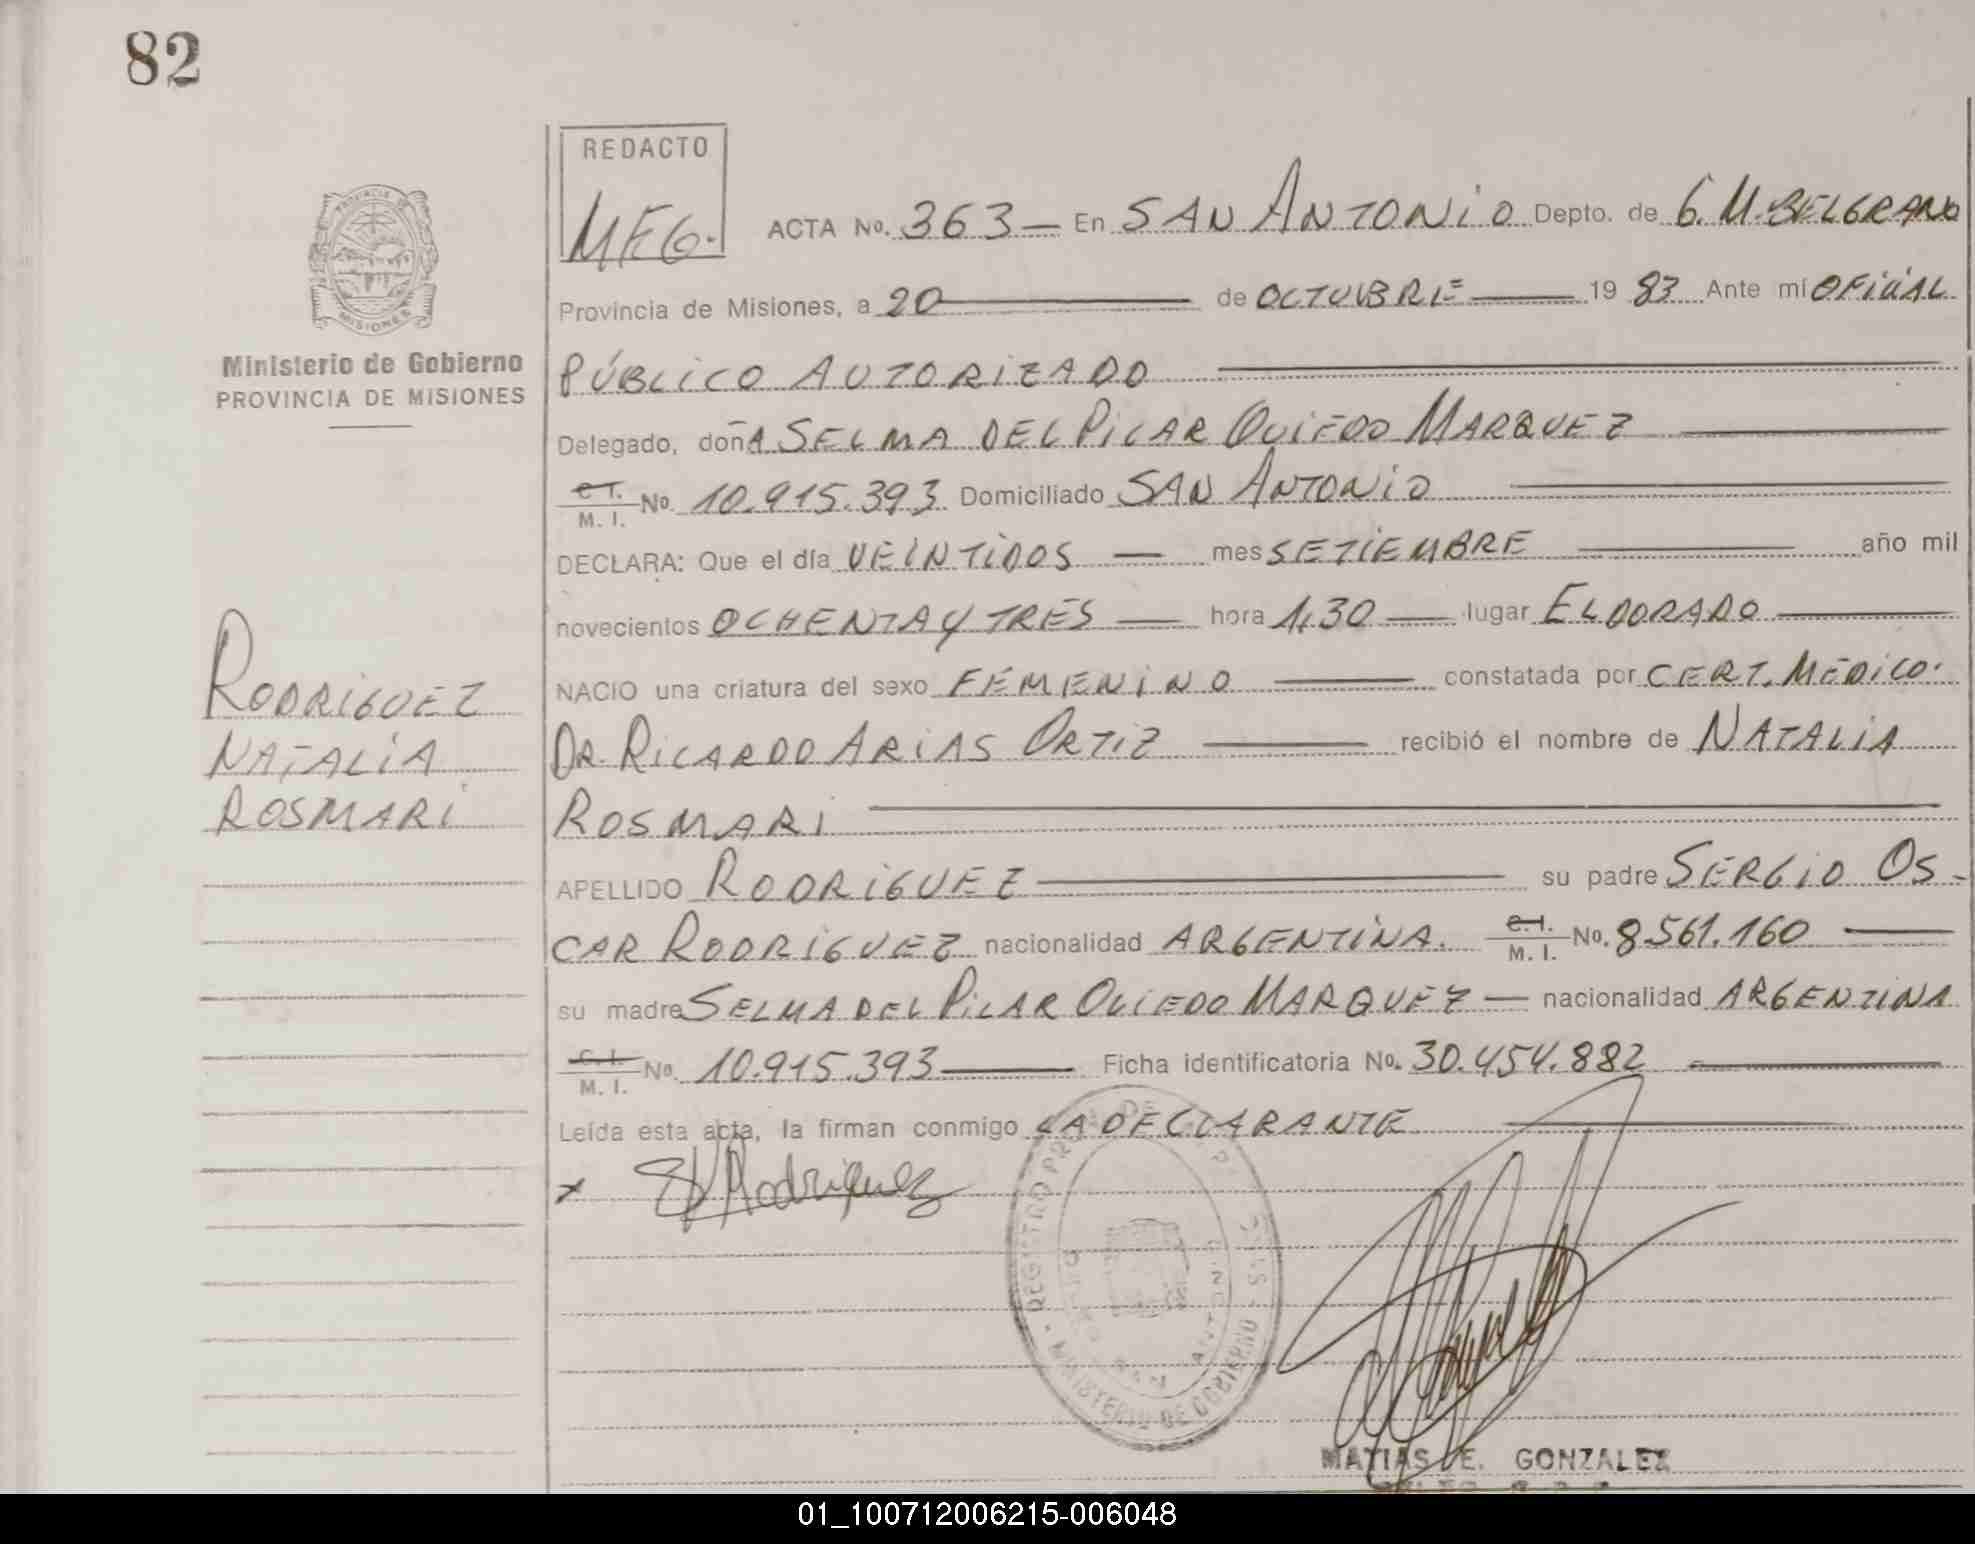 82
REDACTO
MEG.
ACTA No. 363 — En SAN ANTONIO Depto. de G. M. BELGRANO
PROVINCIA DE
MISIONES
Provincia de Misiones, a 20 — de OCTUBRE — 19 83 Ante mi OFICIAL
Ministerio de Gobierno
PROVINCIA DE MISIONES
PÚBLICO AUTORIZADO
Delegado, doñA SELMA DEL PILAR OVIEDO MARQUEZ
C.I. / M. I. No. 10.915.393 Domiciliado SAN ANTONIO
DECLARA: Que el día VEINTIDOS — mes SETIEMBRE — año mil
novecientos OCHENTA Y TRES — hora 1,30 — lugar ELDORADO —
RODRIGUEZ
NATALIA
ROSMARI
NACIO una criatura del sexo FEMENINO — constatada por CERT. MEDICO.
DR. RICARDO ARIAS ORTIZ — recibió el nombre de NATALIA
ROSMARI —
APELLIDO RODRIGUEZ — su padre SERGIO OS-
CAR RODRIGUEZ nacionalidad ARGENTINA. C.I. / M. I. No. 8.561.160 —
su madre SELMA DEL PILAR OVIEDO MARQUEZ — nacionalidad ARGENTINA
C.I. / M. I. No. 10.915.393 — Ficha identificatoria No. 30.454.882 —
Leída esta acta, la firman conmigo LA DECLARANTE —
x Rodriguez
REGISTRO
MINISTERIO DE GOBIERNO
SAN ANTONIO
MATIAS E. GONZALEZ
01_100712006215-006048